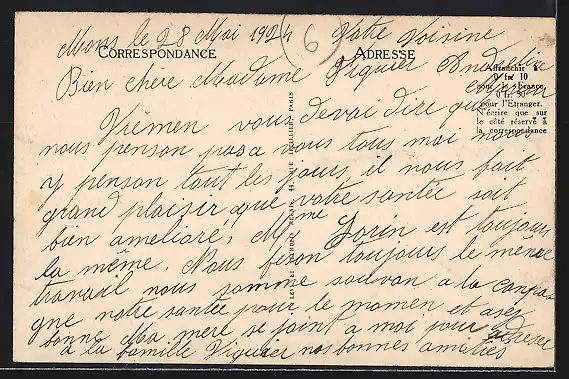 Mons le 28 Mai 1924 Votre Voisine
6
CORRESPONDANCE
ADRESSE
Bien chere Madame Viguier
Affranchir à
0 fr 10
pour la France,
0 fr. 30
pour l'Etranger.
N'écrire que sur
le côté réservé à
la correspondance
Vrémen vous devai dire que
nous penson pas a vous tous mai nous
y penson tout les jours, il nous fait
grand plaisir que votre santée soit
bien ameliore, Mme Jorin est toujours
la même. Nous feson toujours le meme
travail nous somme souvon a la conpa-
gne notre santée pour le momen et asez
bonne Ma mere se joint a moi pour adreser
a la famille Viguier nos bonnes amitiés
PARIS